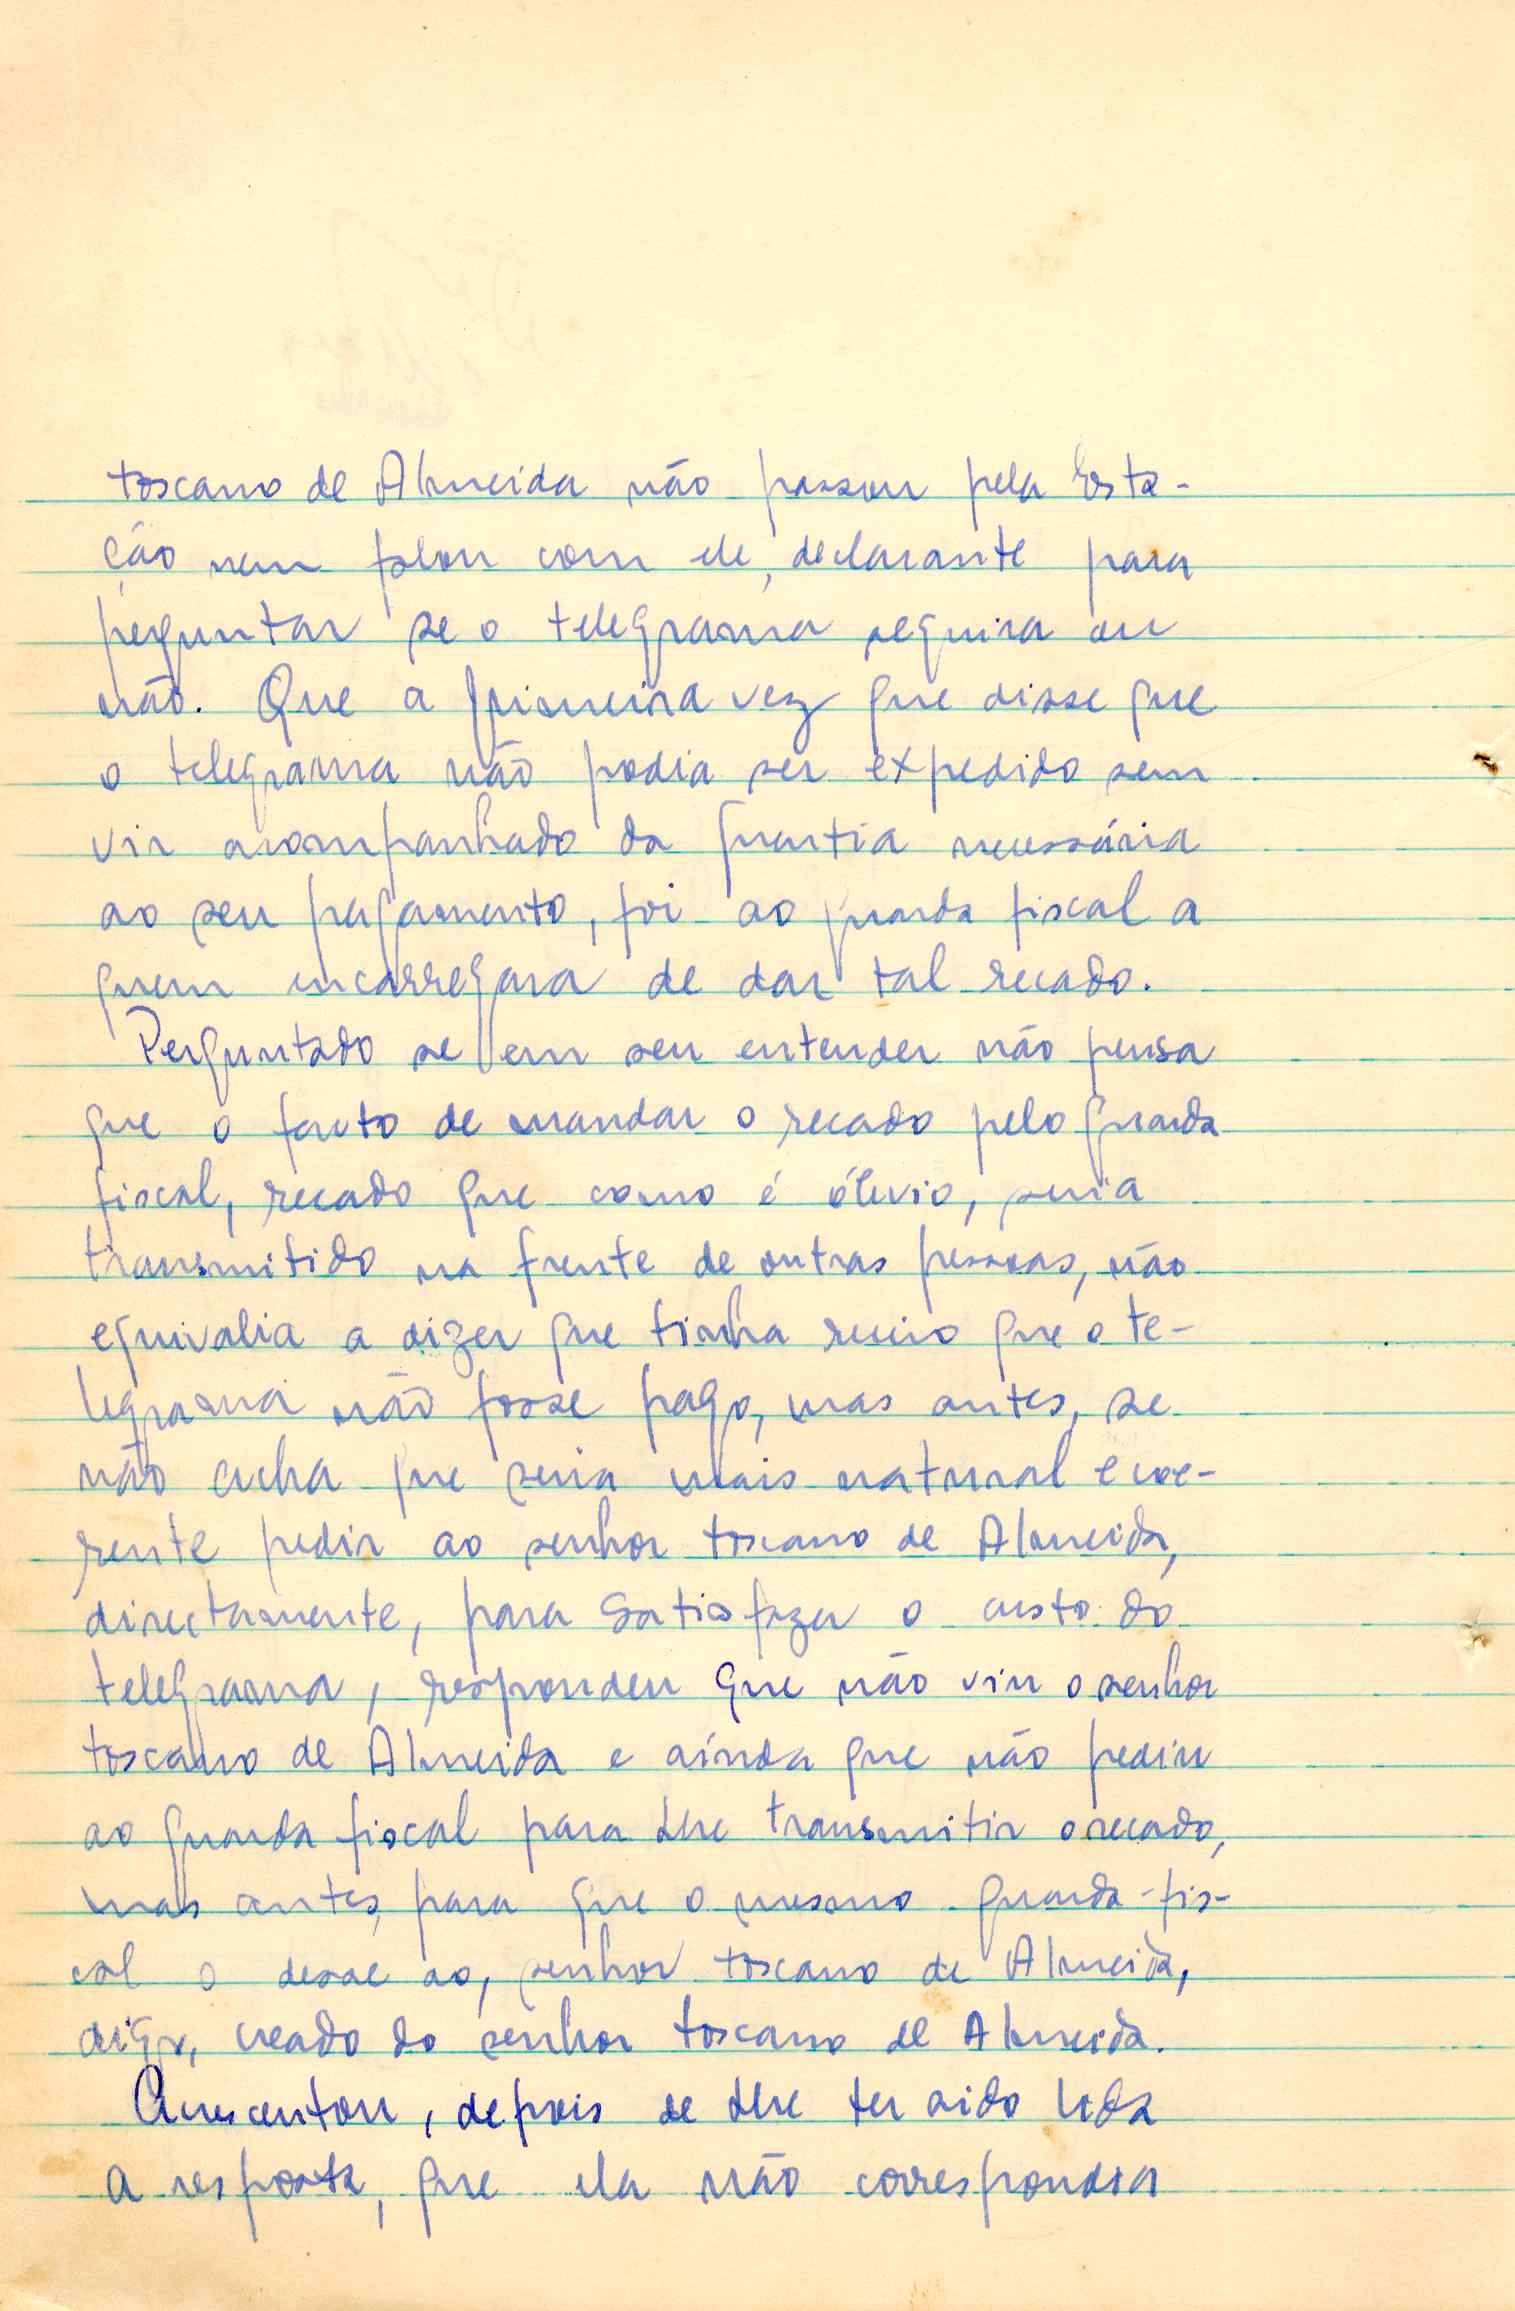 toscano de Almeida não passou pela Esta-
ção nem falou com ele, declarante para
perguntar se o telegrama seguira ou
não. Que a primeira vez que disse que
o telegrama não podia ser expedido sem
vir acompanhado da quantia necessária
ao seu pagamento, foi ao guarda fiscal a
quem encarregara de dar tal recado.
Perguntado se em seu entender não pensa
que o facto de mandar o recado pelo guarda
fiscal, recado que como é óbvio, seria
transmitido na frente de outras pessoas, não
equivalia a dizer que tinha receio que o te-
legrama não fosse pago, mas antes, se
não acha que seria mais natural e coe-
rente pedir ao senhor toscano de Almeida,
directamente, para satisfazer o custo do
telegrama, respondeu que não viu o senhor
toscano de Almeida e ainda que não pediu
ao guarda fiscal para lhe transmitir o recado,
mas antes, para que o mesmo guarda-fis-
cal o desse ao, senhor toscano de Almeida,
digo, creado do senhor toscano de Almeida.
Acrescentou, depois de lhe ter sido lida
a resposta, que ela não correspondia